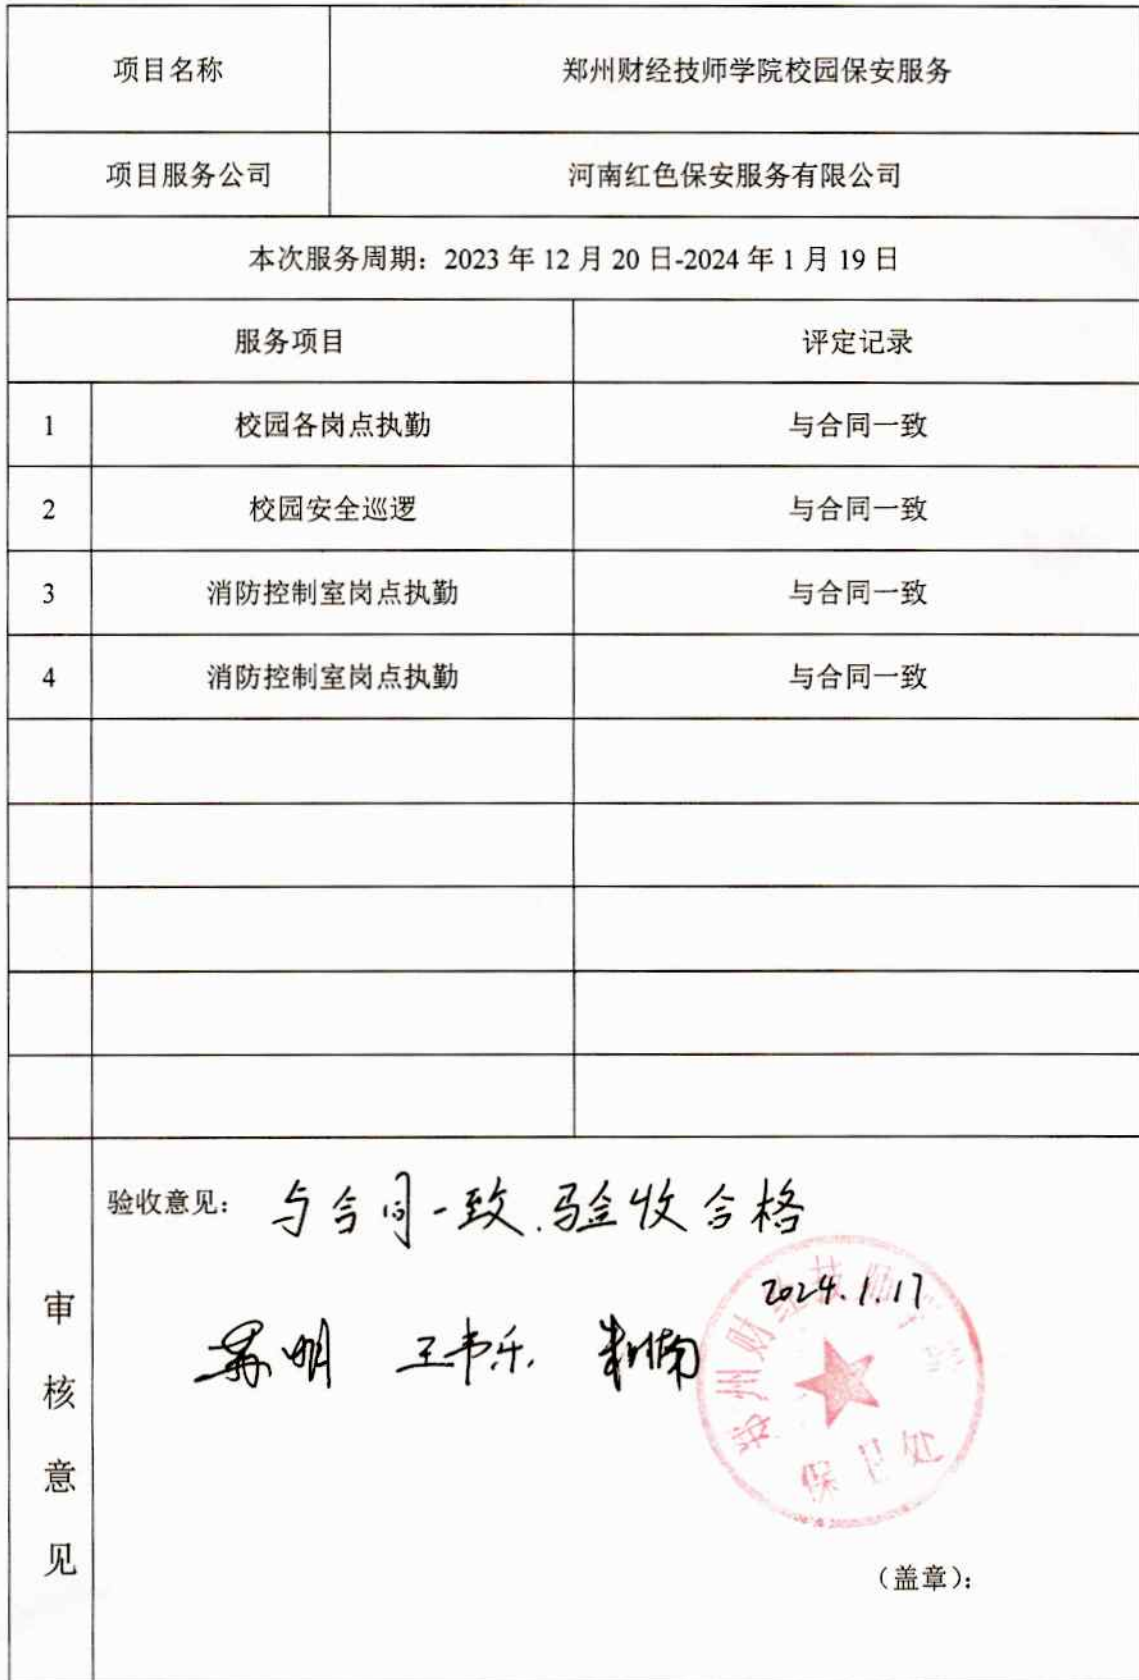 项目名称 郑州财经技师学院校园保安服务
项目服务公司 河南红色保安服务有限公司
本次服务周期：2023 年 12 月 20 日-2024 年 1 月 19 日
服务项目 评定记录
1 校园各岗点执勤 与合同一致
2 校园安全巡逻 与合同一致
3 消防控制室岗点执勤 与合同一致
4 消防控制室岗点执勤 与合同一致
审核意见
验收意见： 与合同一致.验收合格
2024.1.17
郑州财经技师学院
保卫处
（盖章）：